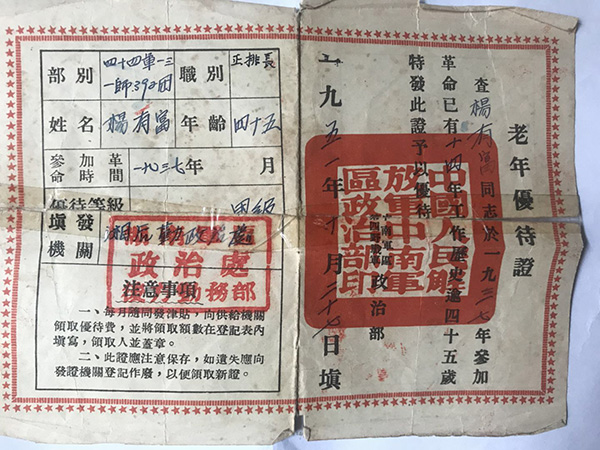 老年優待證
查楊有富同志於一九三七年參加
革命已有十四年工作歷史逾四十五歲
特發此證予以優待
中南軍區
政治部
一九五一年十月三十日填
中國人民解
放軍中南軍
區政治部印
部別 四十四軍一三一師392团 職別 正排長
姓名 楊有富 年齡 四十五
參加革命時間 一九三七年 月
優待等級 甲級
填發機關
政治處
注意事項
一、每月隨同發津貼，向供給機關
領取優待費，並將領取額數在登記表內
填寫，領取人並蓋章。
二、此證應注意保存，如遺失應向
發證機關登記作廢，以便領取新證。